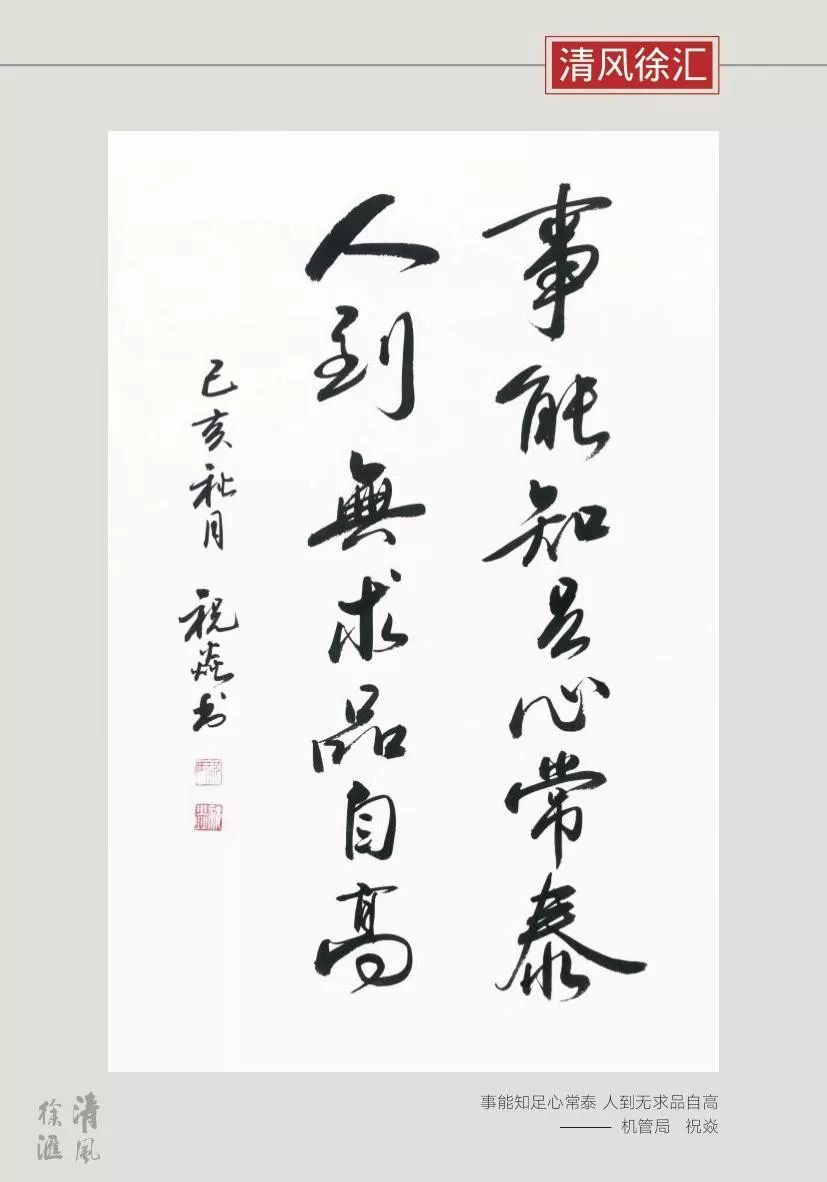 清风徐汇
事能知足心常泰
人到無求品自高
己亥秋月 祝焱书
事能知足心常泰 人到无求品自高
—— 机管局 祝焱
清風
徐滙